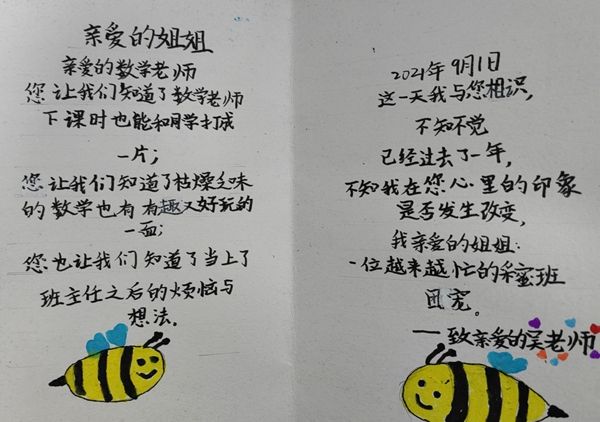 亲爱的姐姐
亲爱的数学老师
您让我们知道了数学老师
下课时也能和同学打成
一片;
您让我们知道了枯燥乏味
的数学也有有趣又好玩的
一面;
您也让我们知道了当上了
班主任之后的烦恼与
想法。
2021年9月1日
这一天我与您相识,
不知不觉
已经过去了一年,
不知我在您心里的印象
是否发生改变,
我亲爱的姐姐:
一位越来越忙的采蜜班
团宠。
——致亲爱的吴老师